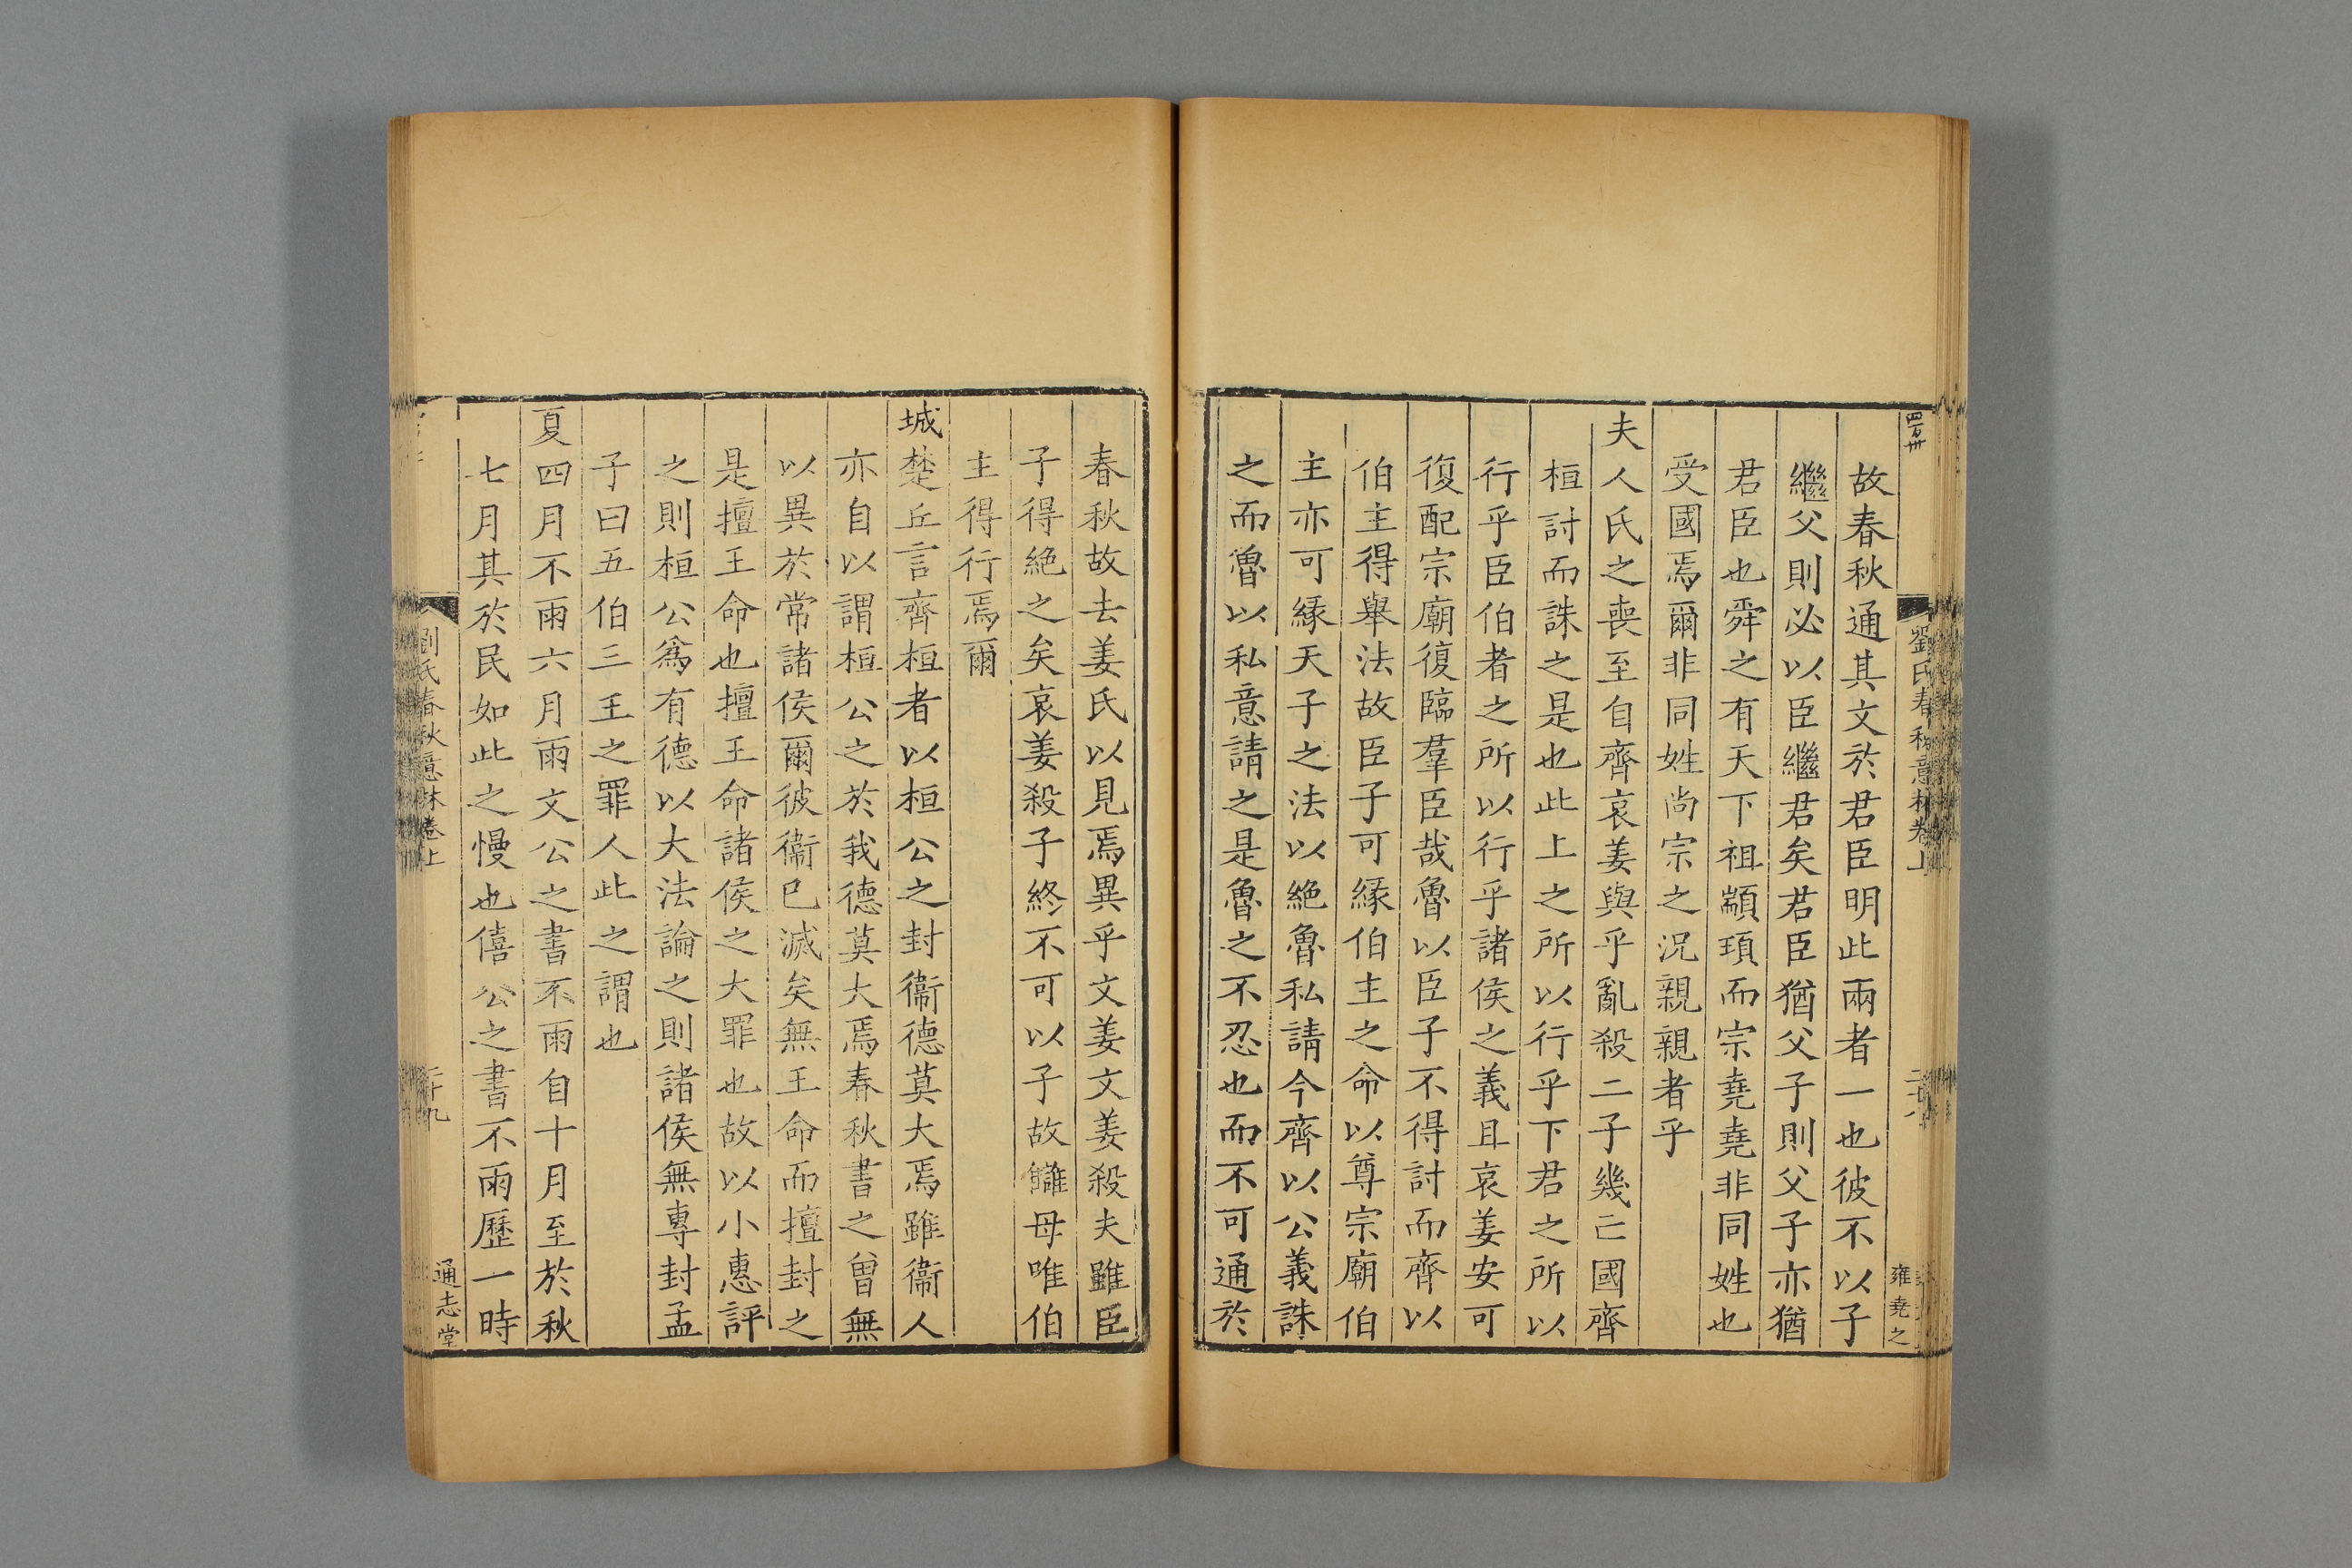 劉氏春秋意林卷上
雍堯之
故春秋通其文於君臣明此兩者一也彼不以子
繼父則必以臣繼君矣君臣猶父子則父子亦猶
君臣也舜之有天下祖顓頊而宗堯堯非同姓也
受國焉爾非同姓尚宗之況親親者乎
夫人氏之喪至自齊哀姜與乎亂殺二子幾亡國齊
桓討而誅之是也此上之所以行乎下君之所以
行乎臣伯者之所以行乎諸侯之義且哀姜安可
復配宗廟復臨羣臣哉魯以臣子不得討而齊以
伯主得舉法故臣子可緣伯主之命以尊宗廟伯
主亦可緣天子之法以絕魯私請今齊以公義誅
之而魯以私意請之是魯之不忍也而不可通於
春秋故去姜氏以見焉異乎文姜文姜殺夫雖臣
子得絕之矣哀姜殺子終不可以子故讎母唯伯
主得行焉爾
城楚丘言齊桓者以桓公之封衞德莫大焉雖衞人
亦自以謂桓公之於我德莫大焉春秋書之曾無
以異於常諸侯爾彼衞已滅矣無王命而擅封之
是擅王命也擅王命諸侯之大罪也故以小惠評
之則桓公爲有德以大法論之則諸侯無專封孟
子曰五伯三王之罪人此之謂也
夏四月不雨六月雨文公之書不雨自十月至於秋
七月其於民如此之慢也僖公之書不雨歷一時
劉氏春秋意林卷上
二十九
通志堂